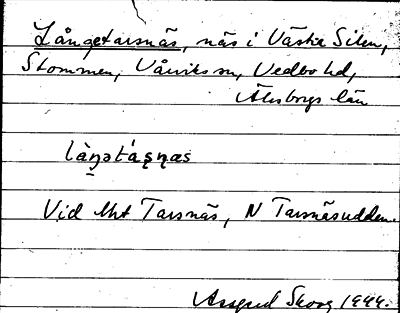 Långetarsnäs, näs i Västra Silen,
Stommen, Vårviks sn, Vedbo hd,
Älvsborgs län
làŋətáʂɳæs
Vid Mht Tarsnäs, N Tarsnäsudden.
Assar Skoog 1944.